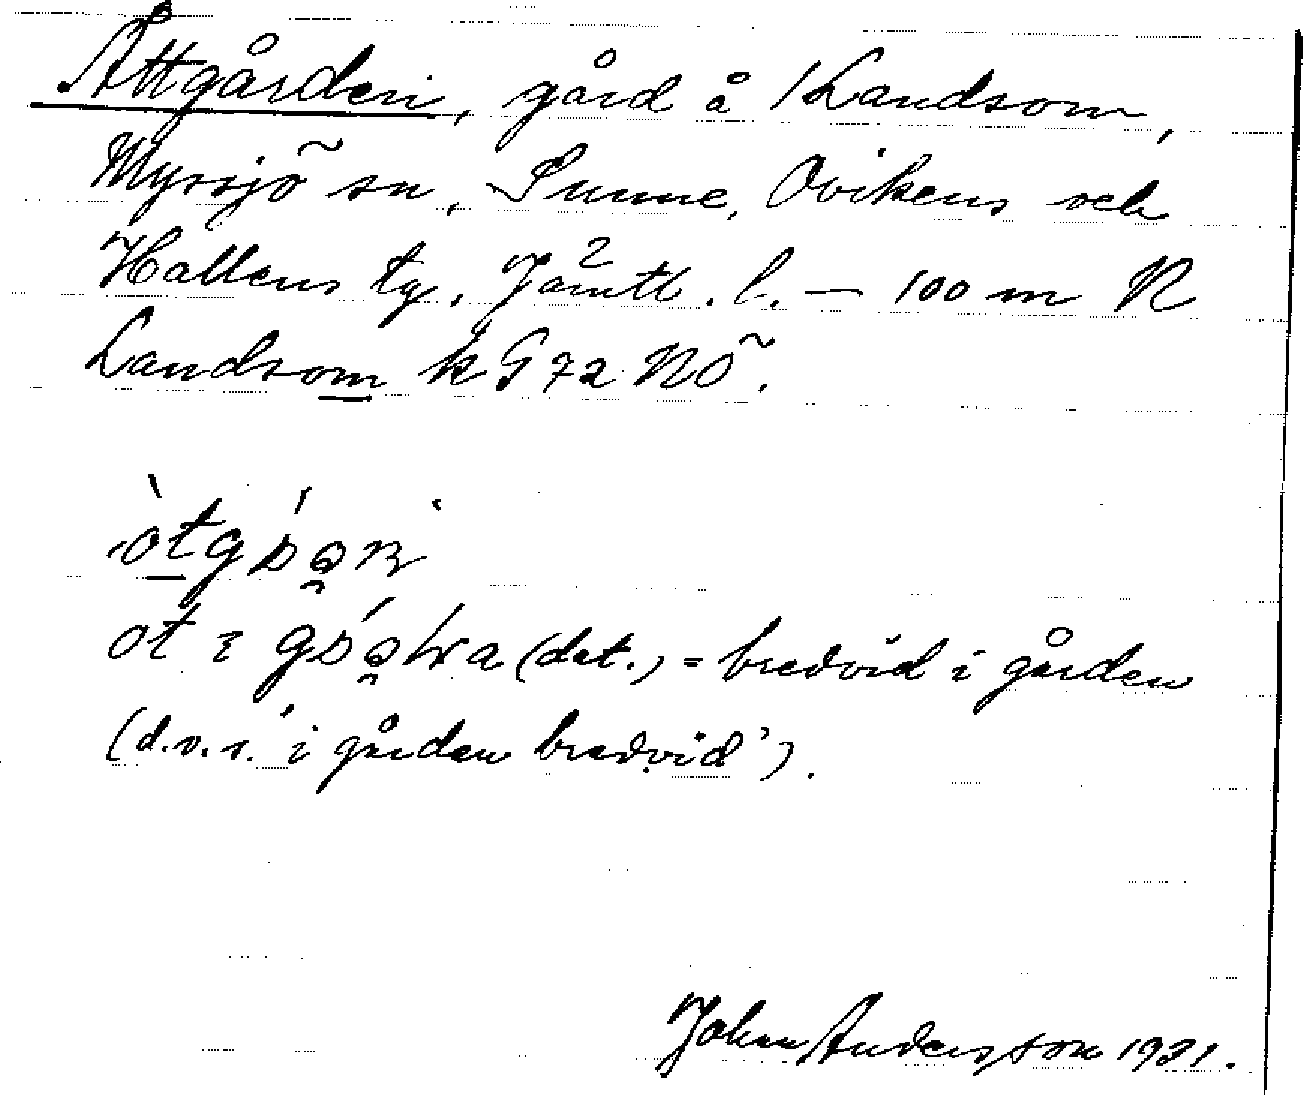 Åttgården, gård å /Landsom,
Myssjö sn, Sunne, Ovikens och
Hallens tg, Jämtl. l. — 100 m N
Landsom k G 72 NÖ.
ot i
(dat.) = bredvid i gården
(d.v.s. 'i gården bredvid').
Johan Andersson 1931.